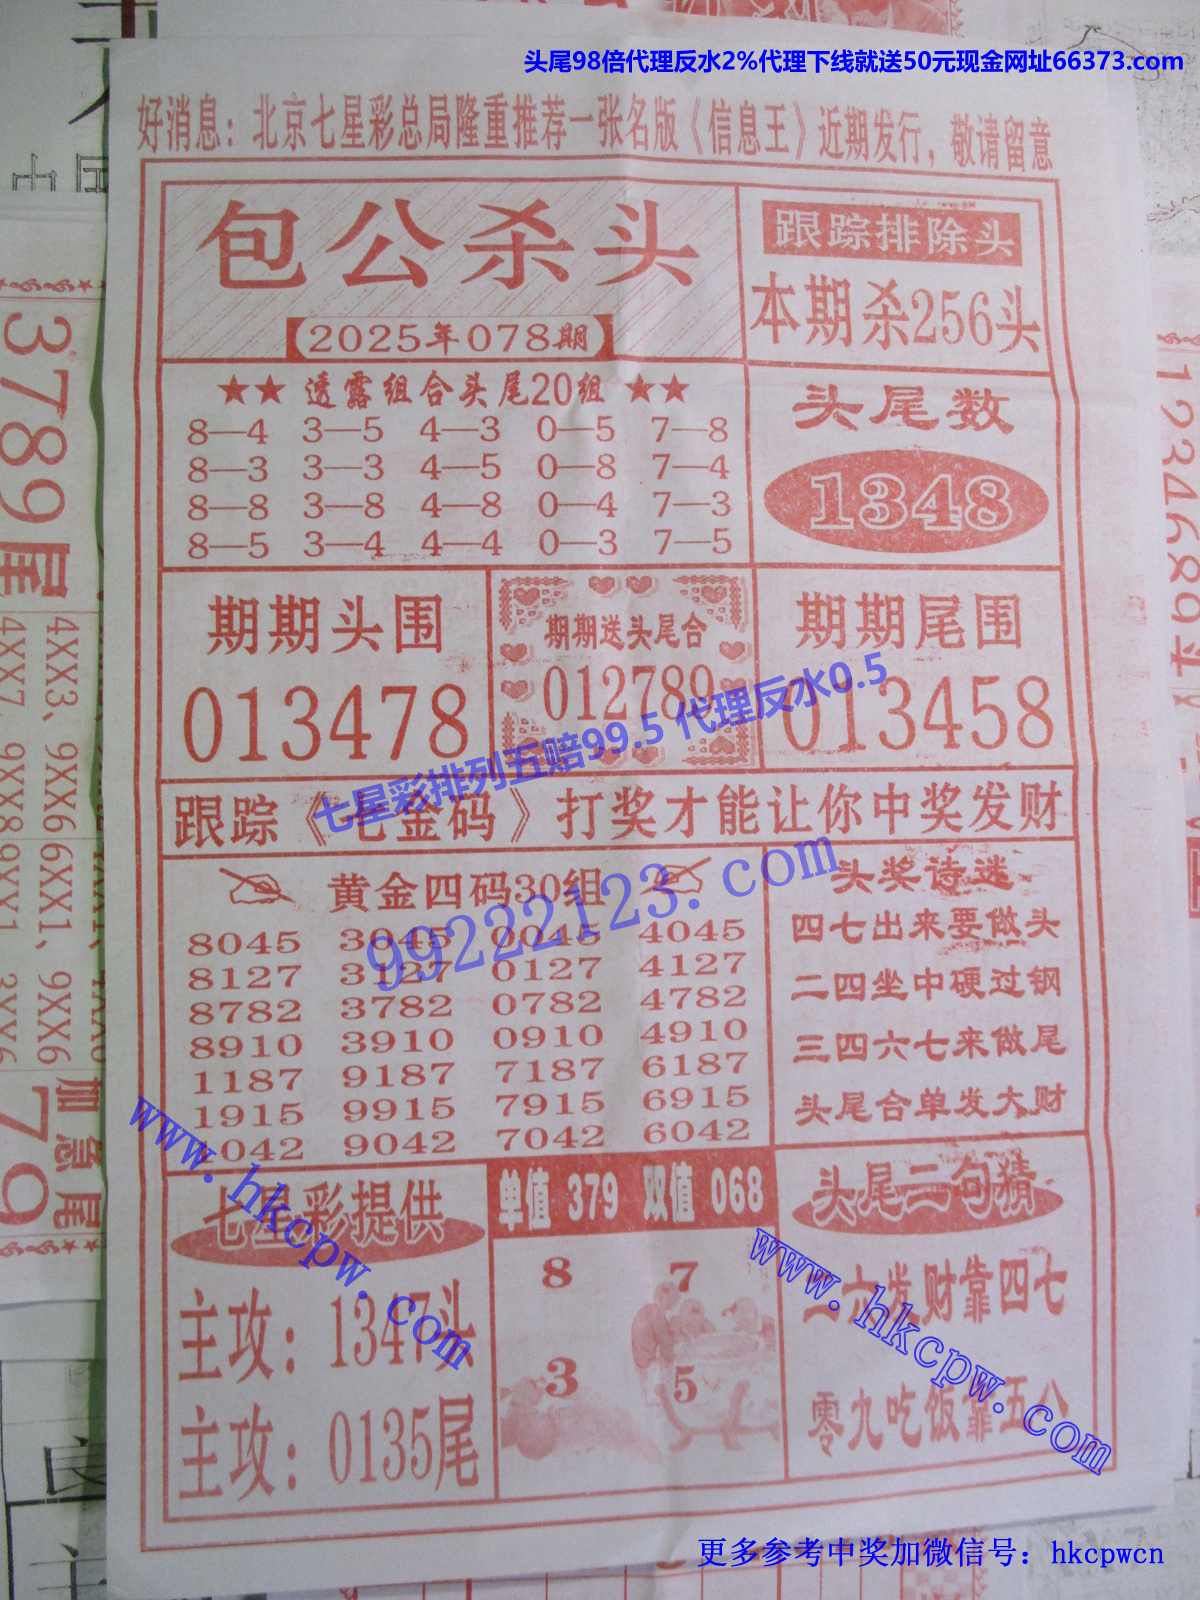 头尾98倍代理反水2%代理下线就送50元现金网址66373.com
好消息：北京七星彩总局隆重推荐一张名版《信息王》近期发行，敬请留意
包公杀头
2025年078期
跟踪排除头
本期杀256头
★★ 透露组合头尾20组 ★★
8—4 3—5 4—3 0—5 7—8
8—3 3—3 4—5 0—8 7—4
8—8 3—8 4—8 0—4 7—3
8—5 3—4 4—4 0—3 7—5
头尾数
1348
期期头围
013478
期期送头尾合
012789
期期尾围
013458
七星彩排列五赔99.5 代理反水0.5
跟踪《七金码》打奖才能让你中奖发财
99222123.com
黄金四码30组
8045 3045 0045 4045
8127 3127 0127 4127
8782 3782 0782 4782
8910 3910 0910 4910
1187 9187 7187 6187
1915 9915 7915 6915
1042 9042 7042 6042
头奖诗选
四七出来要做头
二四坐中硬过钢
三四六七来做尾
头尾合单发大财
www.hkcpw.com
七星彩提供
主攻：1347头
主攻：0135尾
单值 379 双值 068
8 7
3 5
头尾二句猜
二六发财靠四七
零九吃饭靠五八
www.hkcpw.com
更多参考中奖加微信号：hkcpwcn
3789尾
4XX3、9XX6
6XX1、9XX6
加急尾
79
12346891头